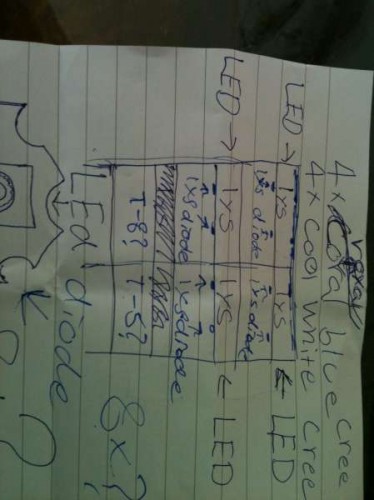 4x Royal blue cree
4x cool white cree
LED → lys lys ← LED
lysdiode lysdiode
LED → lys lys ← LED
lysdiode lysdiode
T-8? T-5?
LED diode 8x?
?